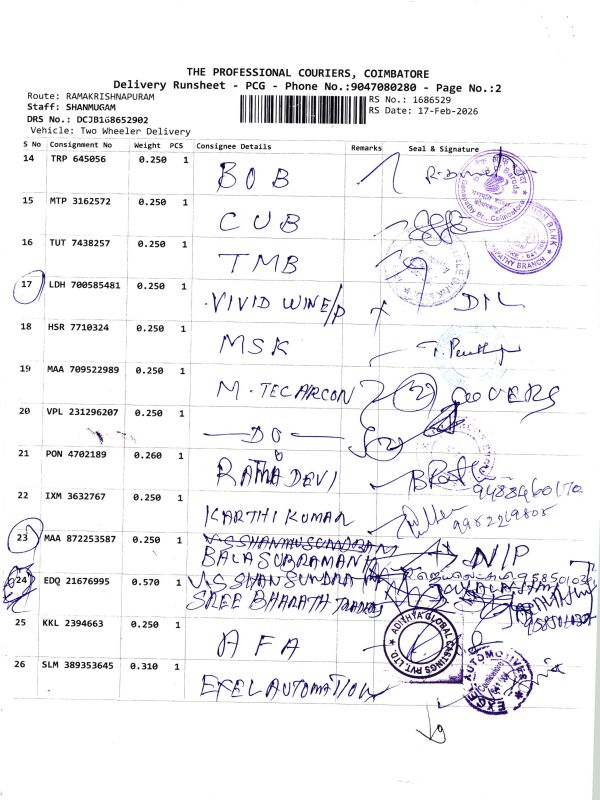 THE PROFESSIONAL COURIERS, COIMBATORE
Delivery Runsheet - PCG - Phone No.:9047080280 - Page No.:2
Route: RAMAKRISHNAPURAM
Staff: SHANMUGAM
DRS No.: DCJB168652902
Vehicle: Two Wheeler Delivery
RS No.: 1686529
RS Date: 17-Feb-2026
S No Consignment No Weight PCS Consignee Details Remarks Seal & Signature
14 TRP 645056 0.250 1 BOB
15 MTP 3162572 0.250 1 CUB
16 TUT 7438257 0.250 1 TMB
17 LDH 700585481 0.250 1 VIVID WINE/P D/L
18 HSR 7710324 0.250 1 MSK
19 MAA 709522989 0.250 1 M. TEC AIRCON (2) COVERS
20 VPL 231296207 0.250 1 —DO— (2)
21 PON 4702189 0.260 1 RATHADEVI
9488460170
22 IXM 3632767 0.250 1 KARTHI KUMAN
9952219805
23 MAA 872253587 0.250 1 BALASUBRAMANI N/P
24 EDQ 21676995 0.570 1
SREE BHARATH
25 KKL 2394663 0.250 1 AFA
ADITHYA GLOBAL CASTINGS PVT. LTD.
26 SLM 389353645 0.310 1 EXEL AUTOMATION